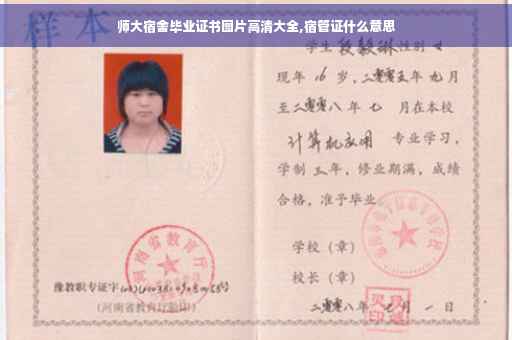 师大宿舍毕业证书图片高清大全,宿管证什么意思
样本
学生 段毅琳 性别 女
现年 16 岁,二零零五年 九 月
至二零零八 年 七 月在本校
计算机应用 专业学习,
学制 三 年,修业期满,成绩
合格,准予毕业
学校(章)
校长(章)
二零零八年 七 月 一 日
河南省教育厅
豫教职专证字
号
(河南省教育厅验印)